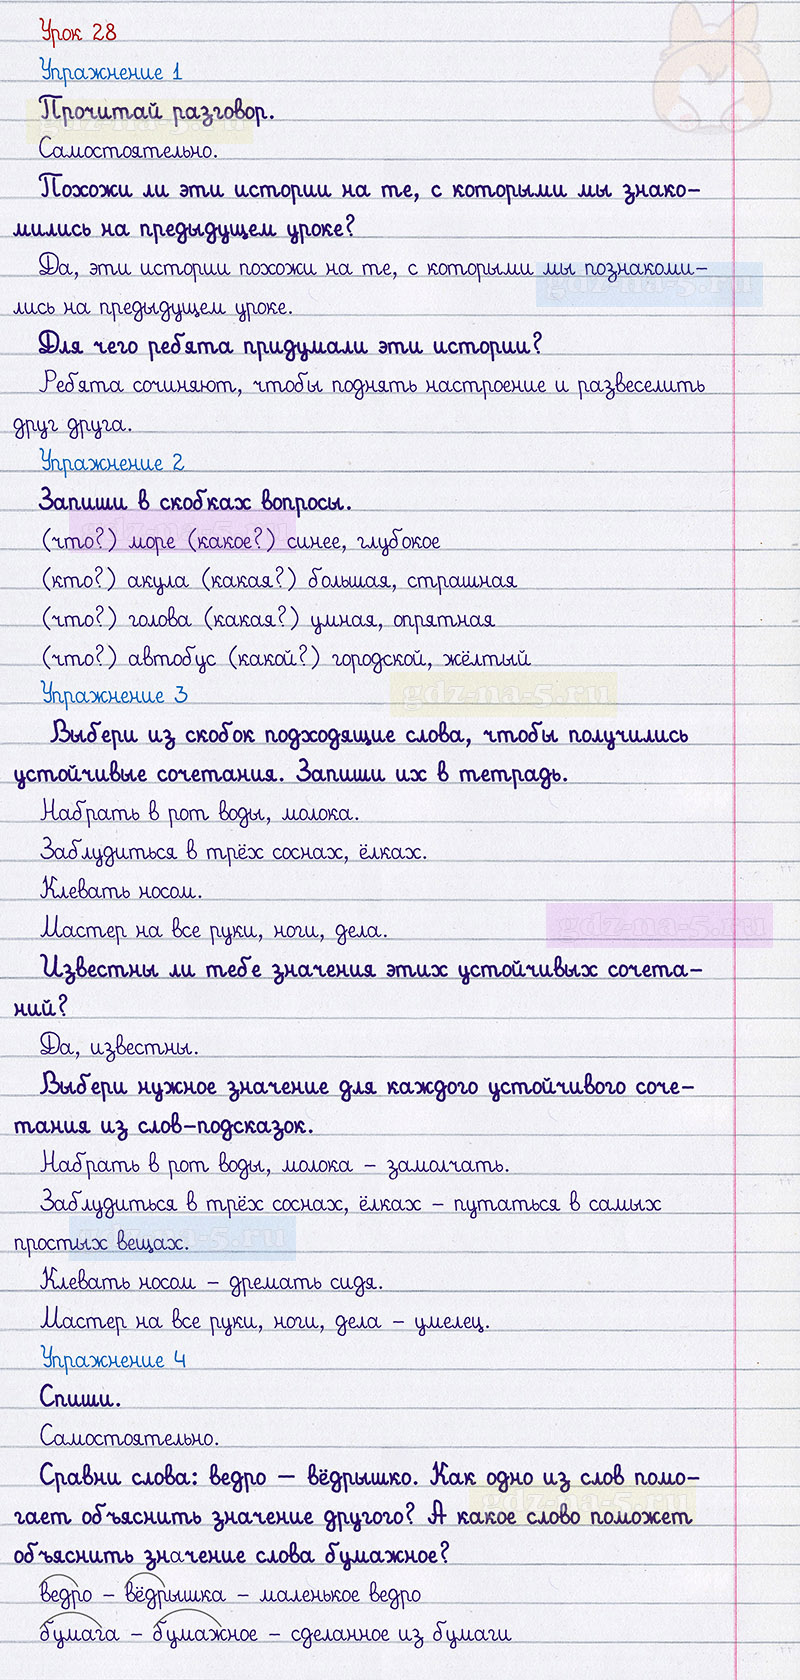 Урок 28
Упражнение 1
Прочитай разговор.
gdz-na-5.ru
Самостоятельно.
Похожи ли эти истории на те, с которыми мы знако-
мились на предыдущем уроке?
Да, эти истории похожи на те, с которыми мы познакоми-
gdz-na-5.ru
лись на предыдущем уроке.
Для чего ребята придумали эти истории?
Ребята сочиняют, чтобы поднять настроение и развеселить
друг друга.
Упражнение 2
Запиши в скобках вопросы.
gdz-na-5.ru
(что?) море (какое?) синее, глубокое
(кто?) акула (какая?) большая, страшная
(что?) голова (какая?) умная, опрятная
(что?) автобус (какой?) городской, жёлтый
Упражнение 3
gdz-na-5.ru
Выбери из скобок подходящие слова, чтобы получились
устойчивые сочетания. Запиши их в тетрадь.
Набрать в рот воды, молока.
Заблудиться в трёх соснах, ёлках.
Клевать носом.
Мастер на все руки, ноги, дела.
gdz-na-5.ru
Известны ли тебе значения этих устойчивых сочета-
ний?
Да, известны.
Выбери нужное значение для каждого устойчивого соче-
тания из слов-подсказок.
Набрать в рот воды, молока – замолчать.
Заблудиться в трёх соснах, ёлках – путаться в самых
простых вещах.
gdz-na-5.ru
Клевать носом – дремать сидя.
Мастер на все руки, ноги, дела – умелец.
Упражнение 4
Спиши.
Самостоятельно.
Сравни слова: ведро – вёдрышко. Как одно из слов помо-
gdz-na-5.ru
гает объяснить значение другого? А какое слово поможет
объяснить значение слова бумажное?
ведро – вёдрышка – маленькое ведро
бумага – бумажное – сделанное из бумаги